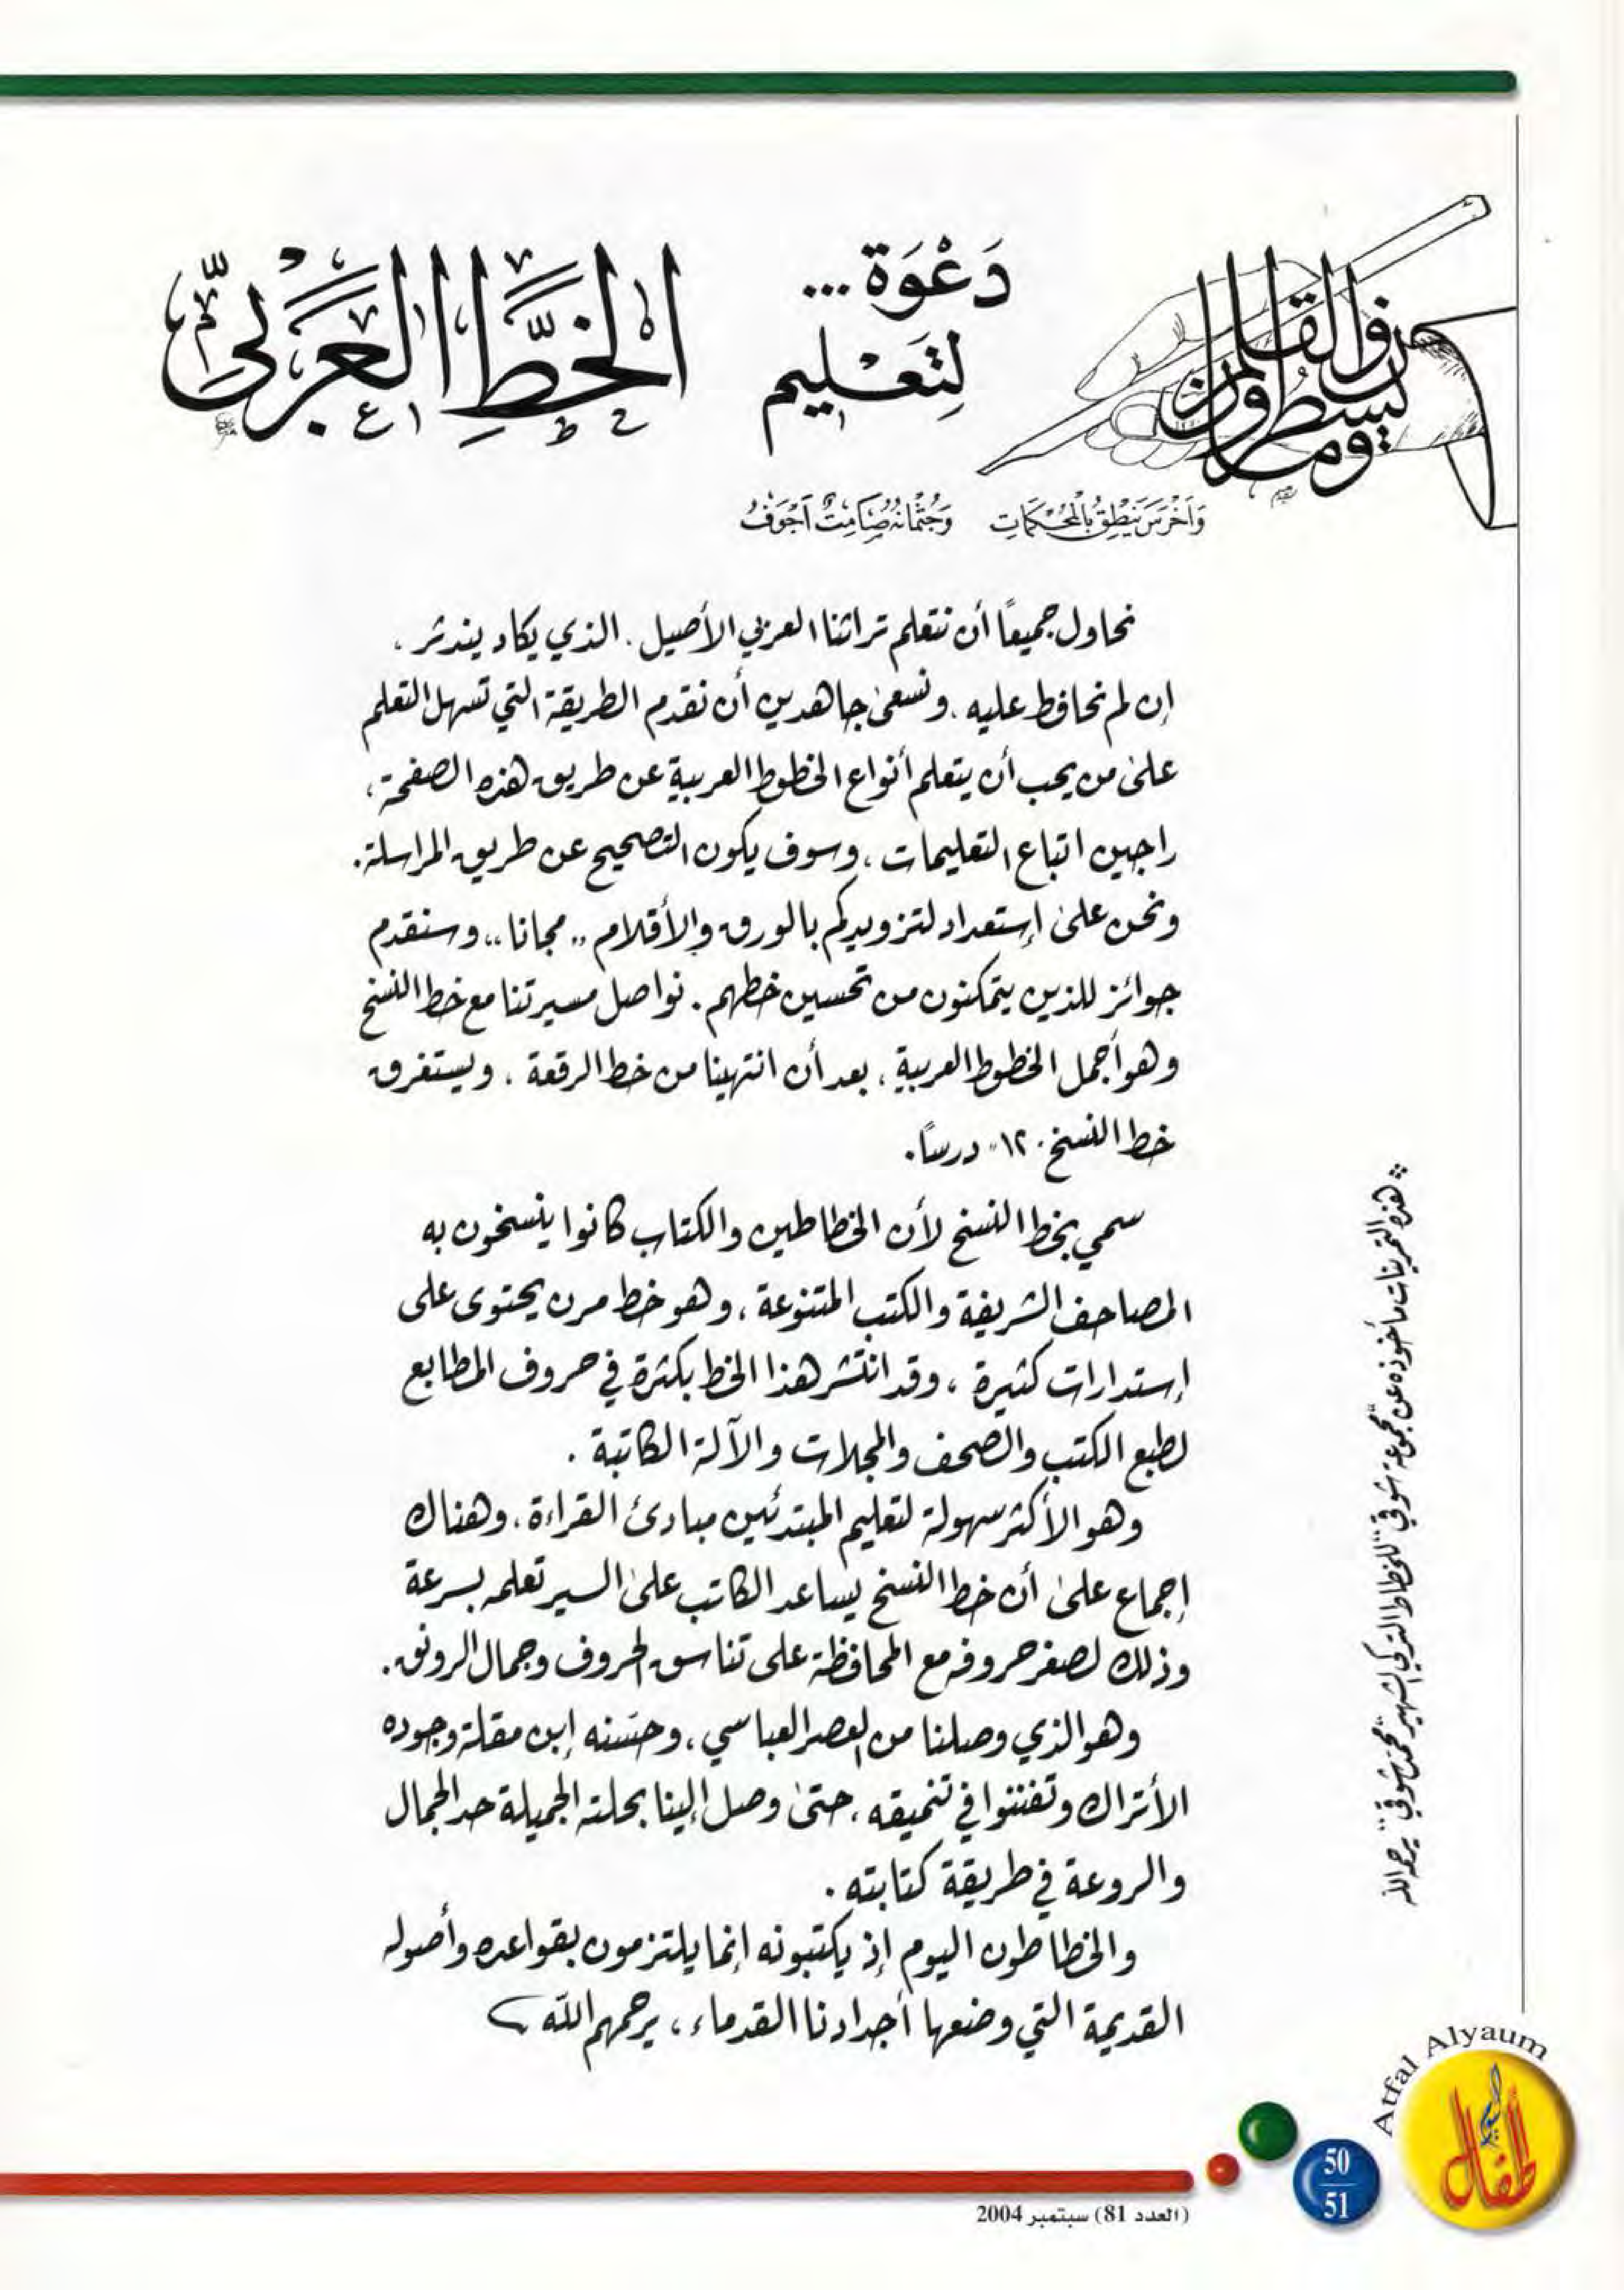 ن والقلم وما يسطرون
دَعْوَة...
لِتَعْليم
الخَطِّ العَرَبيِّ
وَأَخْرَسَ يَنْطِقُ بِالْمُحْكَمَاتِ وَجُثْمَانُهُ صَامِتٌ أَجْوَفُ
نحاول جميعاً أن نتعلم تراثنا العربي الأصيل . الذي يكاد يندثر ،
إن لم نحافظ عليه . ونسعى جاهدين أن نقدم الطريقة التي تسهل التعلم
على من يحب أن يتعلم أنواع الخطوط العربية عن طريق هذه الصفحة ،
راجين اتباع التعليمات ، وسوف يكون التصحيح عن طريق المراسلة .
ونحن على إستعداد لتزويدكم بالورق والأقلام ،، مجانا ،، وسنقدم
جوائز للذين يتمكنون من تحسين خطهم . نواصل مسيرتنا مع خط النسخ
وهو أجمل الخطوط العربية ، بعد أن انتهينا من خط الرقعة ، ويستغرق
خط النسخ "١٢" درساً .
سمي بخط النسخ لأن الخطاطين والكتاب كانوا ينسخون به
المصاحف الشريفة والكتب المتنوعة ، وهو خط مرن يحتوى على
إستدارات كثيرة ، وقد انتشر هذا الخط بكثرة في حروف المطابع
لطبع الكتب والصحف والمجلات والآلة الكاتبة .
وهو الأكثر سهولة لتعليم المبتدئين مبادئ القراءة ، وهناك
إجماع على أن خط النسخ يساعد الكاتب على السير تعلمه بسرعة
وذلك لصغر حروفه مع المحافظة على تناسق الحروف وجمال الرونق .
وهو الذي وصلنا من العصر العباسي ، وحسنه إبن مقلة وجوده
الأتراك وتفننوا في تنميقه ، حتى وصل إلينا بحلته الجميلة حد الجمال
والروعة في طريقة كتابته .
والخطاطون اليوم إذ يكتبونه إنما يلتزمون بقواعده وأصوله
القديمة التي وضعها أجدادنا القدماء ، يرحمهم الله
* هذه التمرينات مأخوذه عن "مجموعة شوقي" للخطاط التركي الشهير "محمد شوقي" يرحمه الله
Atfal Alyaum
أطفال اليوم
50
51
(العدد 81) سبتمبر 2004